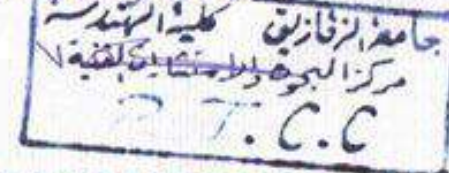 جامعة الزقازيق كلية الهندسة
مركز البحوث والاستشارات الفنية
T.C.C